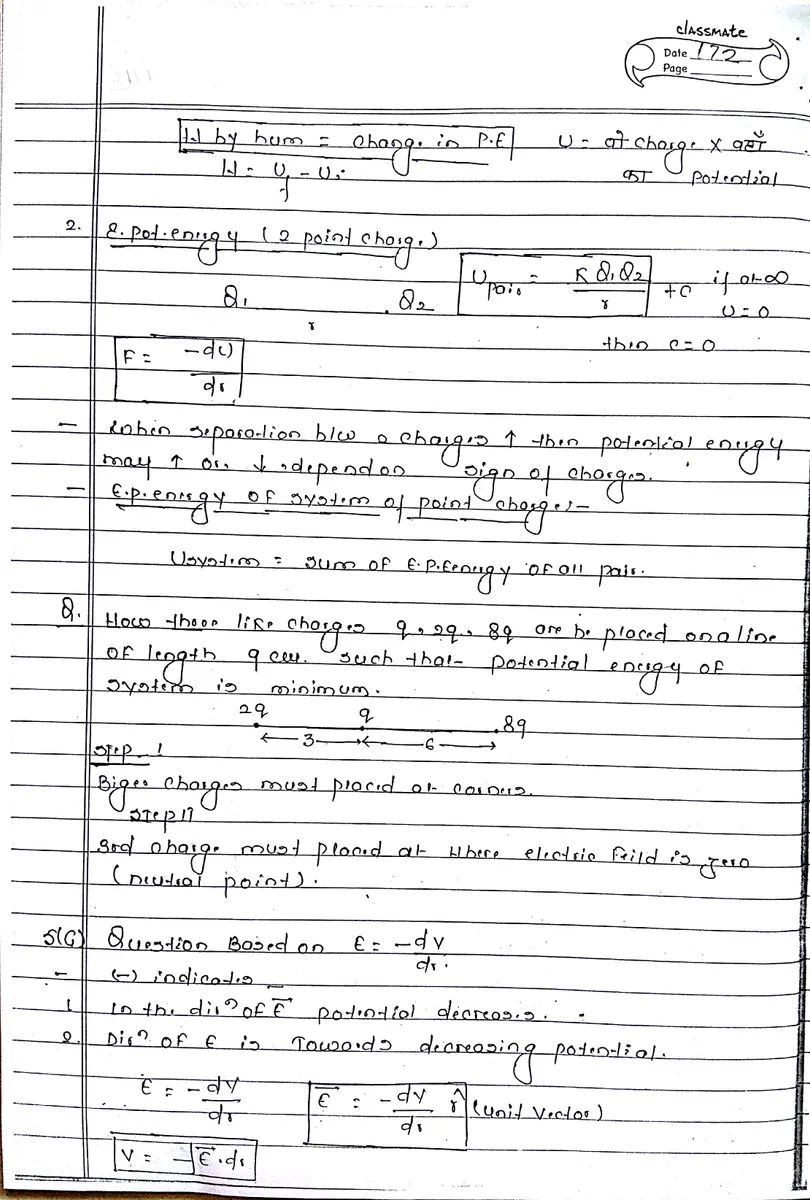 classmate
Date 172
Page
W by hum = change in P.E U = वो charge x वहाँ
W = Uf - Ui का potential
2. E. pot. energy (2 point charge)
Upair = K Q1 Q2 / r + c if at ∞
Q1 Q2 U = 0
r then c = 0
F = -dU / dr
- When separation b/w 2 charges ↑ then potential energy
may ↑ or ↓ depend on sign of charges.
- E.p. energy of system of point charge :-
Usystem = sum of E.P. Eenergy of all pair.
Q. How thoor like charges q, 2q, 8q are be placed on a line
of length 9 cm. such that potential energy of
system is minimum.
2q q 8q
3 6
Step 1
Biger charges must placed at corners.
Step 11
3rd charge must placed at where electric feild is zero
(neutral point).
5(G) Question Based on E = -dV / dr.
- (-) indicates
1 In the dirn of E⃗ potential decreases.
2. Dirn of E is Towards decreasing potential.
E = -dV / dr E⃗ = -dV / dr r̂ (unit vector)
V = -∫E⃗.dr